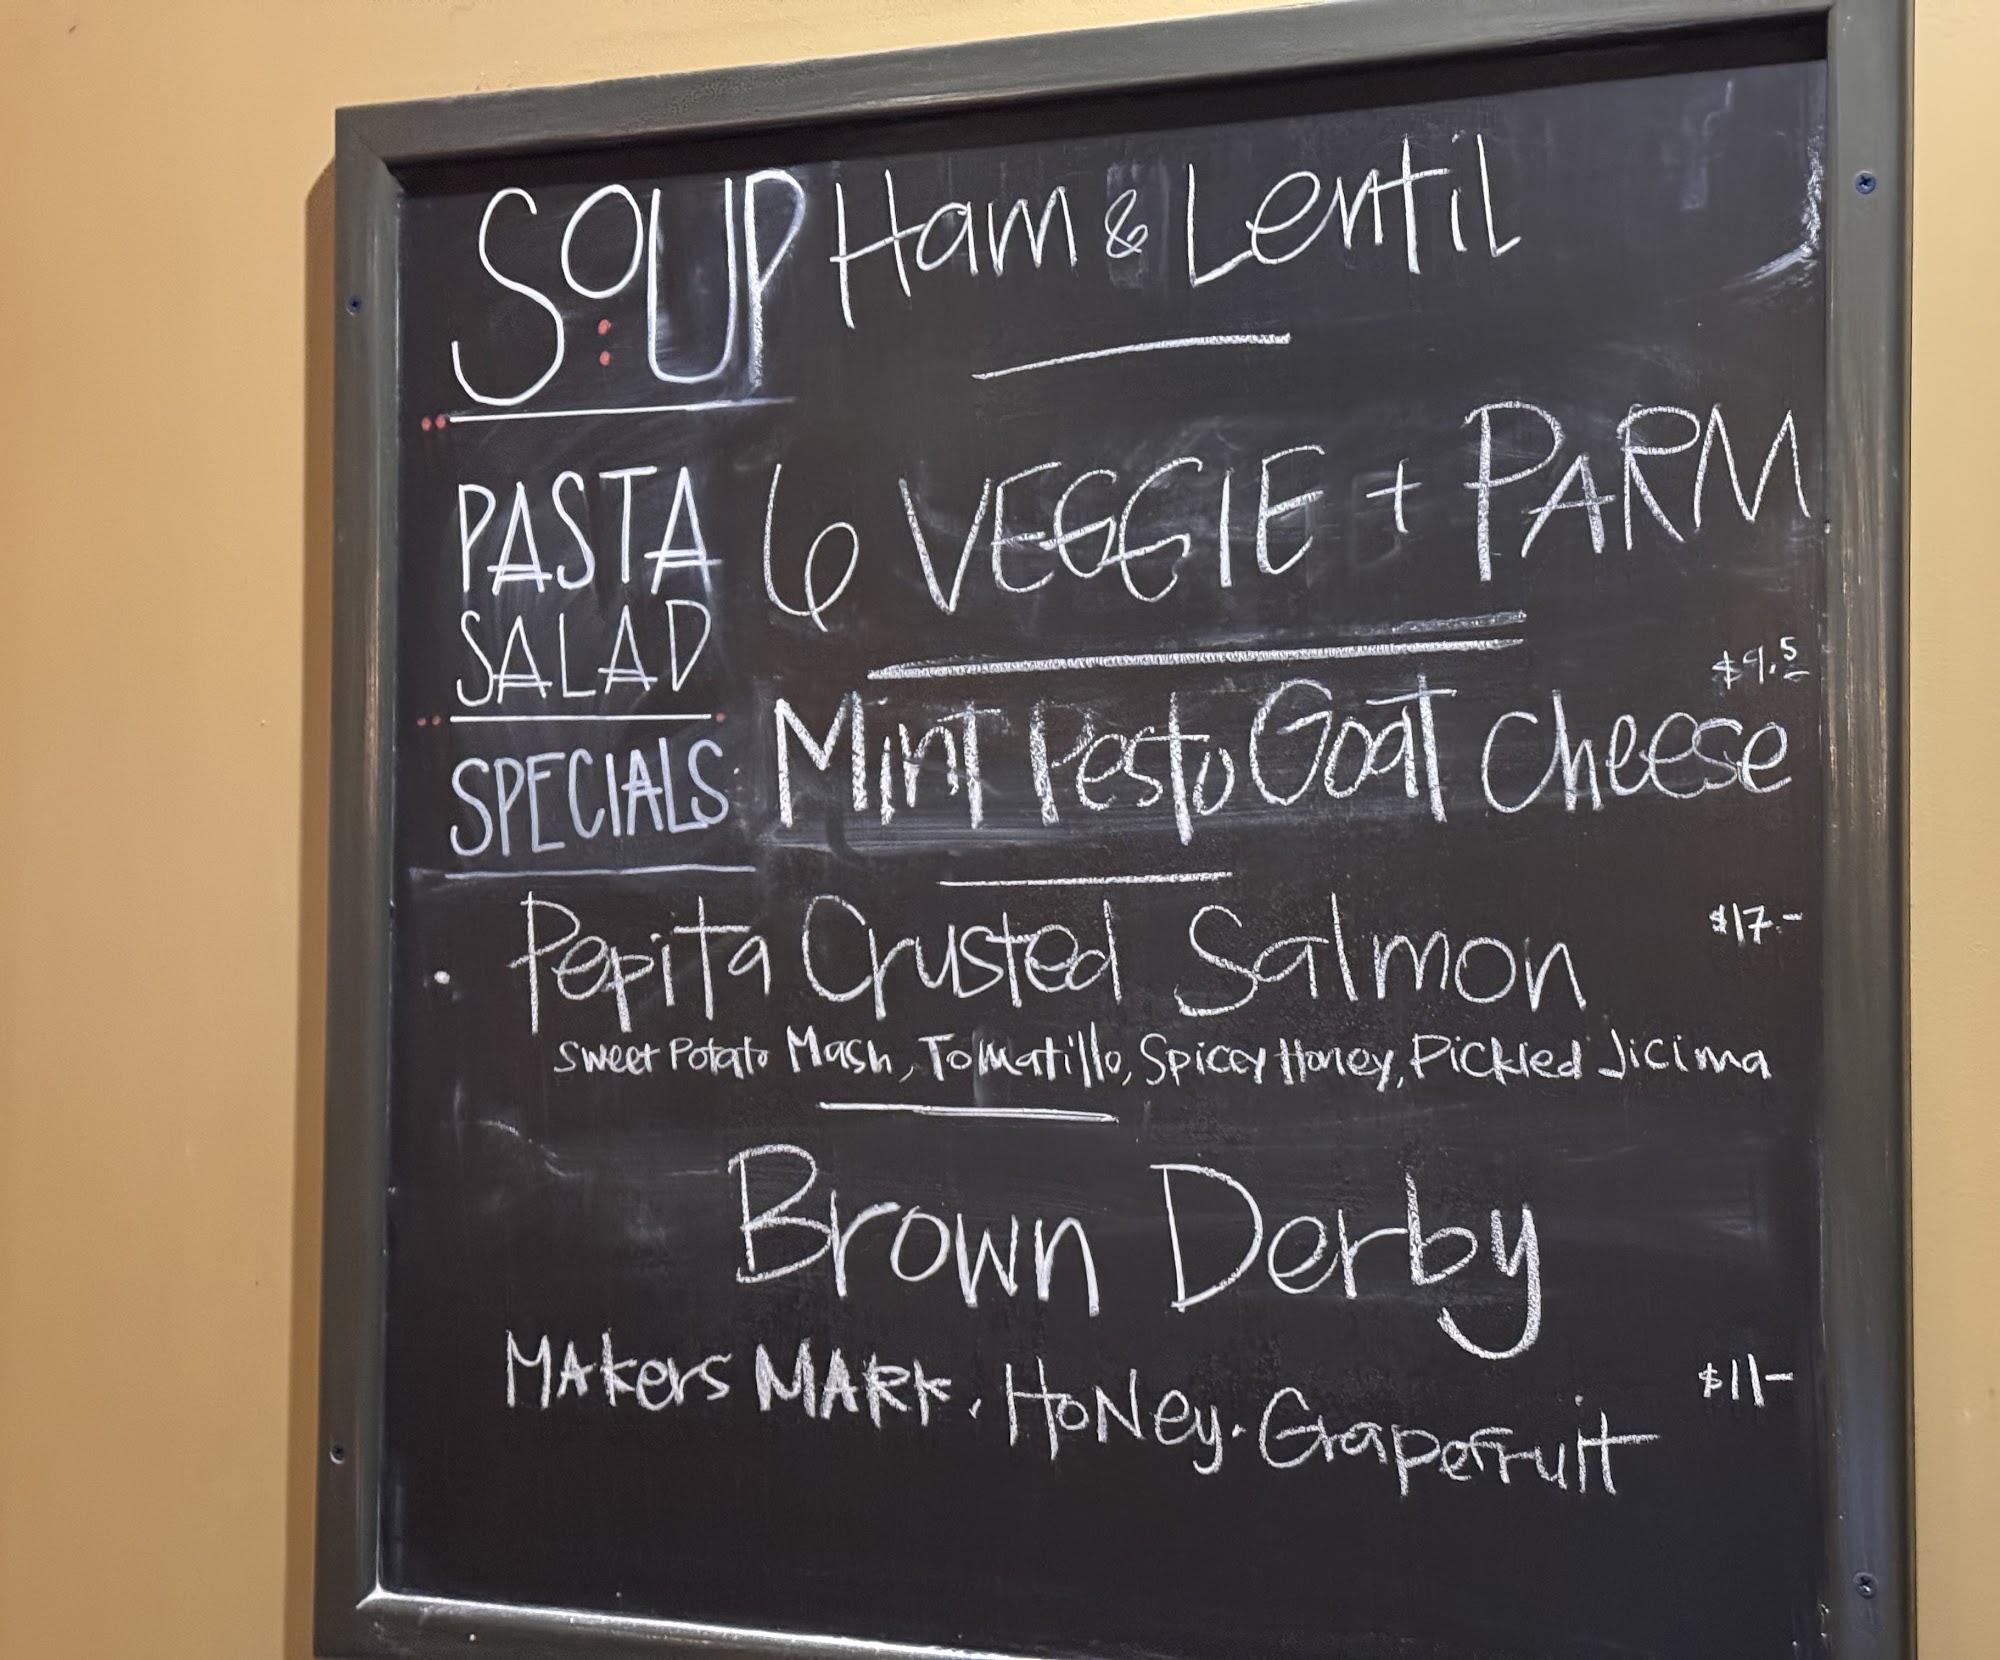 SOUP Ham & Lentil
PASTA SALAD 6 VEGGIE + PARM
$9.5
SPECIALS Mint Pesto Goat Cheese
Pepita Crusted Salmon $17.-
Sweet Potato Mash, Tomatillo, Spicey Honey, Pickled Jicima
Brown Derby
MAkers MARK. HoNey. Grapefruit $11-